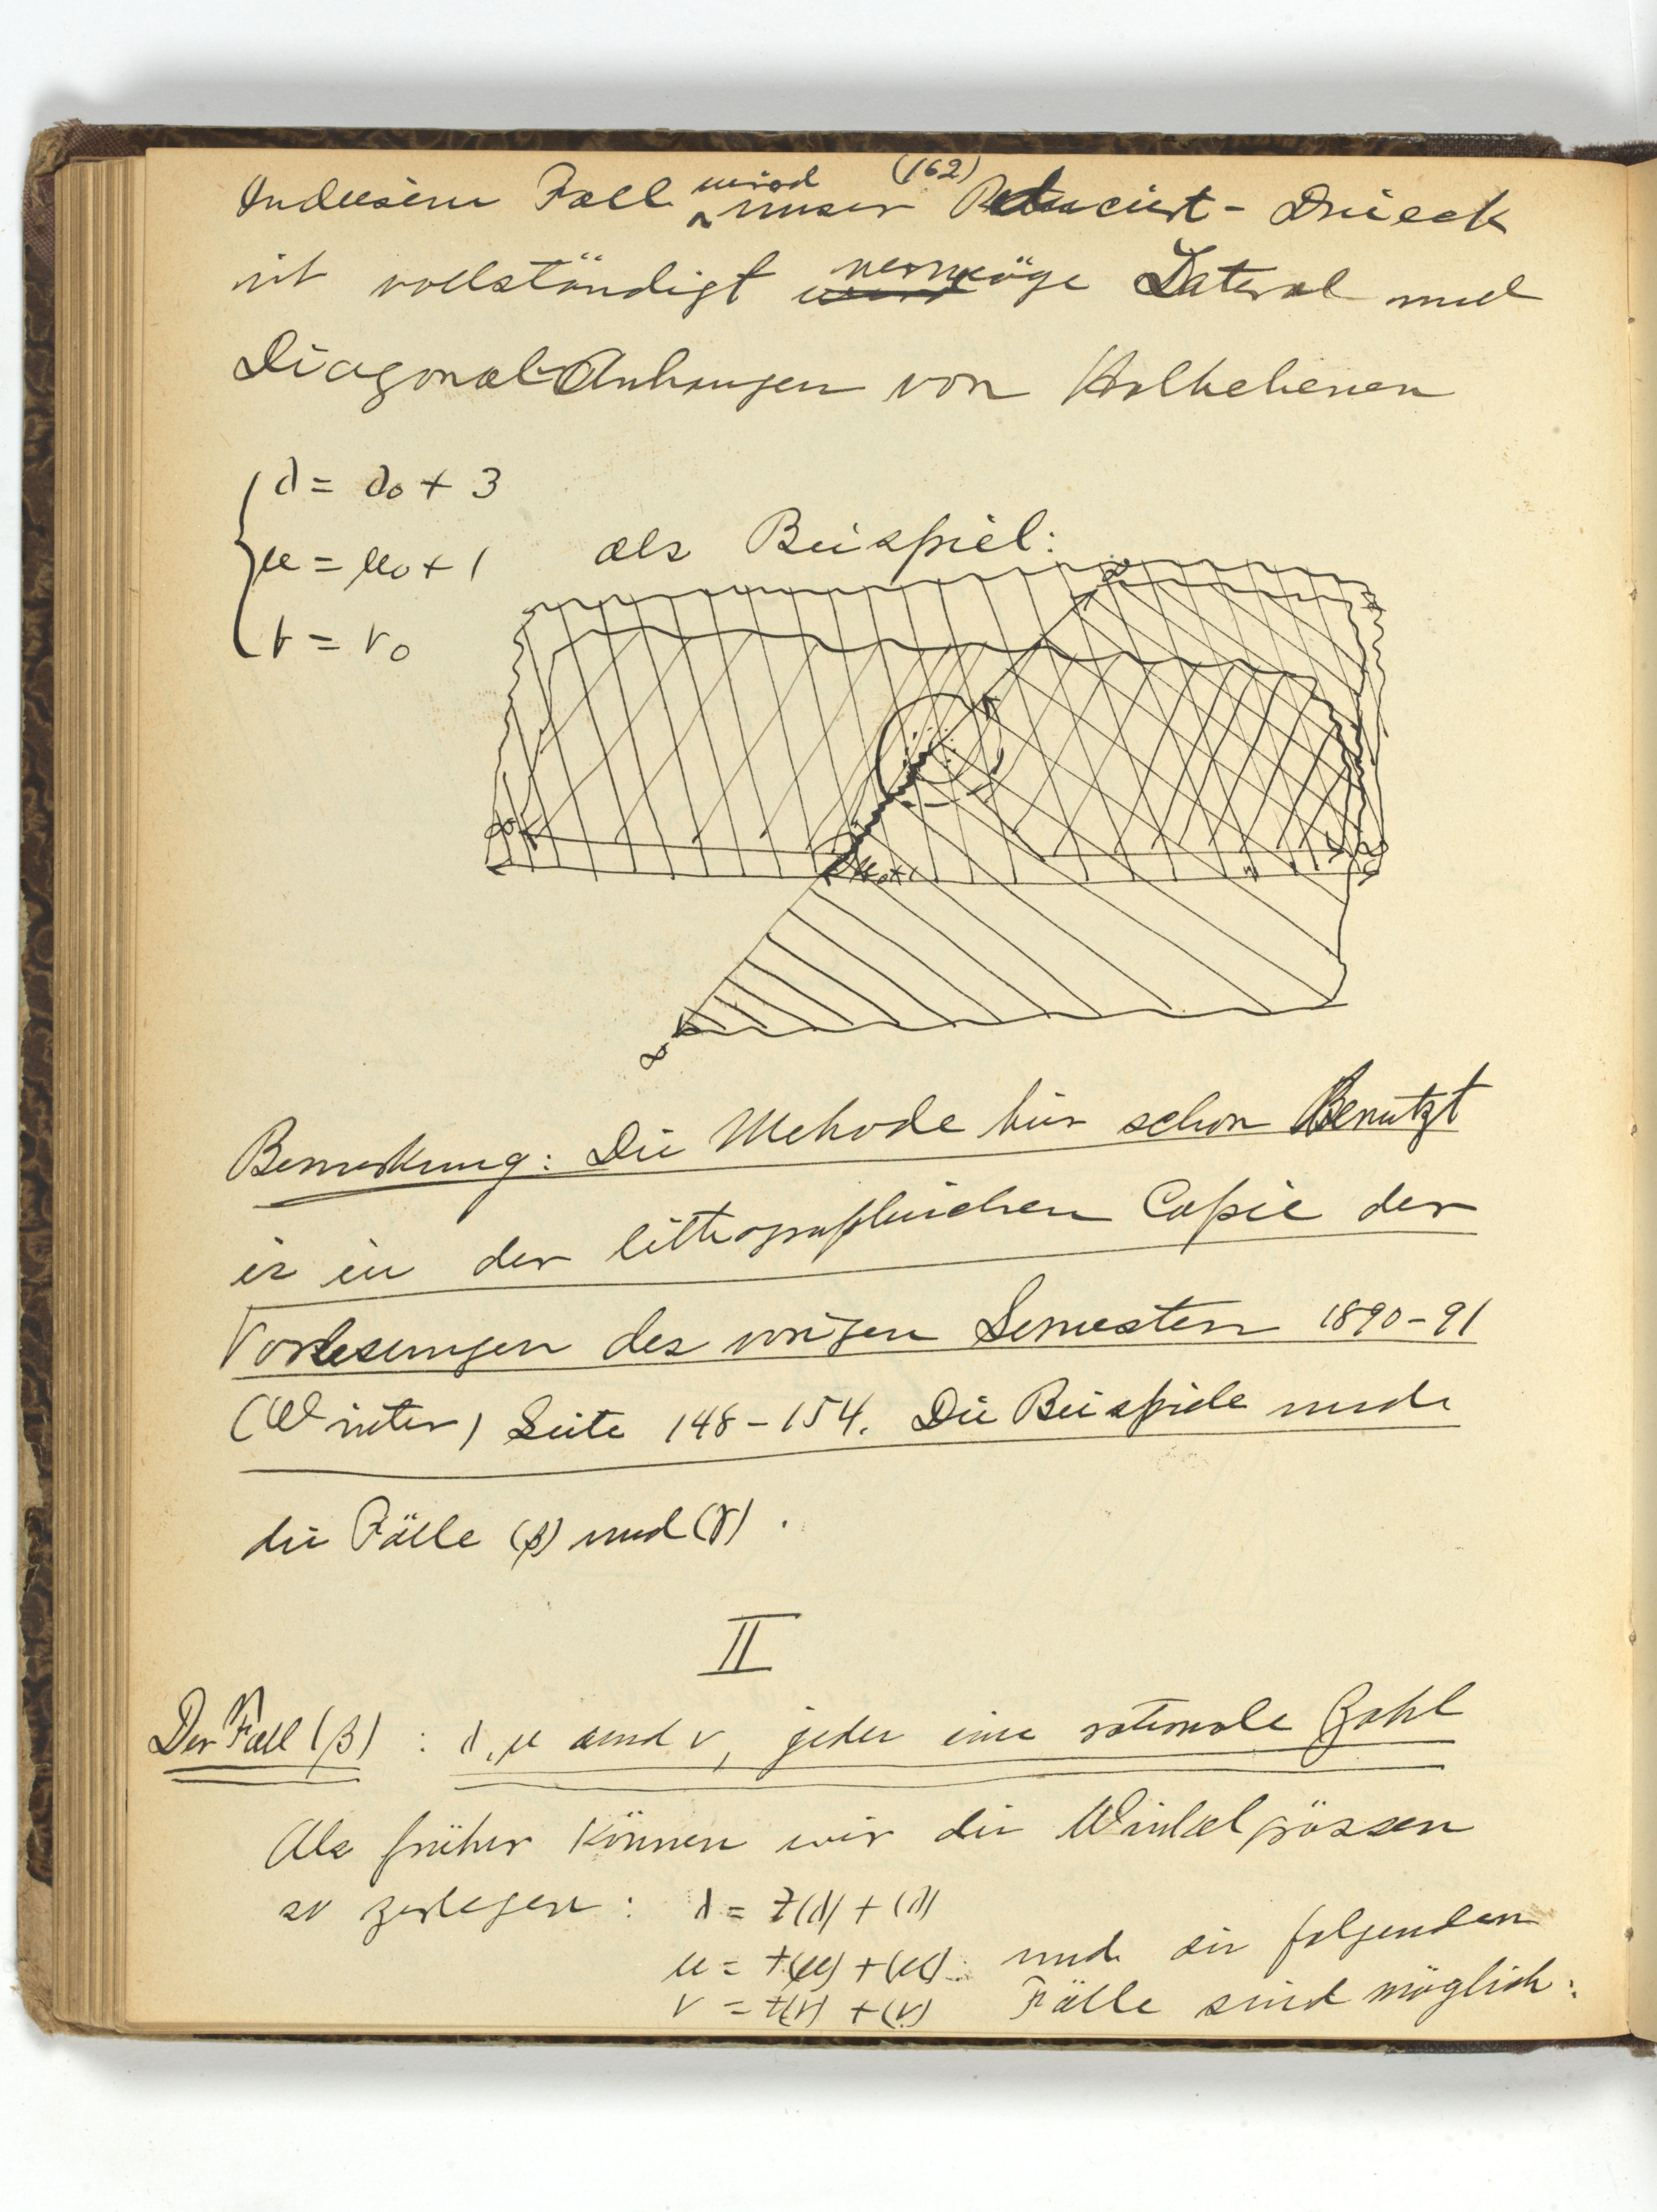 (162)
In diesem Fall wird unser Reduciert-Dreieck
ist vollständigt vermöge Lateral und
Diagonal Anhangen von Halbebenen
λ = λ₀ + 3
μ = μ₀ + 1
ν = ν₀
als Beispiel:
∞
∞
μ₀+1
∞
Bemerkung: Die Methode hier schon Benutzt
is in der litthographischen Copie der
Vorlesungen des vorigen Semestern 1890-91
(Winter) Seite 148-154. Die Beispiele
die Fälle (β) und (γ).
II
Der Fall (β) : λ, μ and ν, jeder eine rationale Zahl
Als früher können wir die Winkelgrössen
so zerlegen: λ = z(λ) + (λ)
μ = z(μ) + (μ) und die folgenden
ν = z(ν) + (ν) Fälle sind möglich: